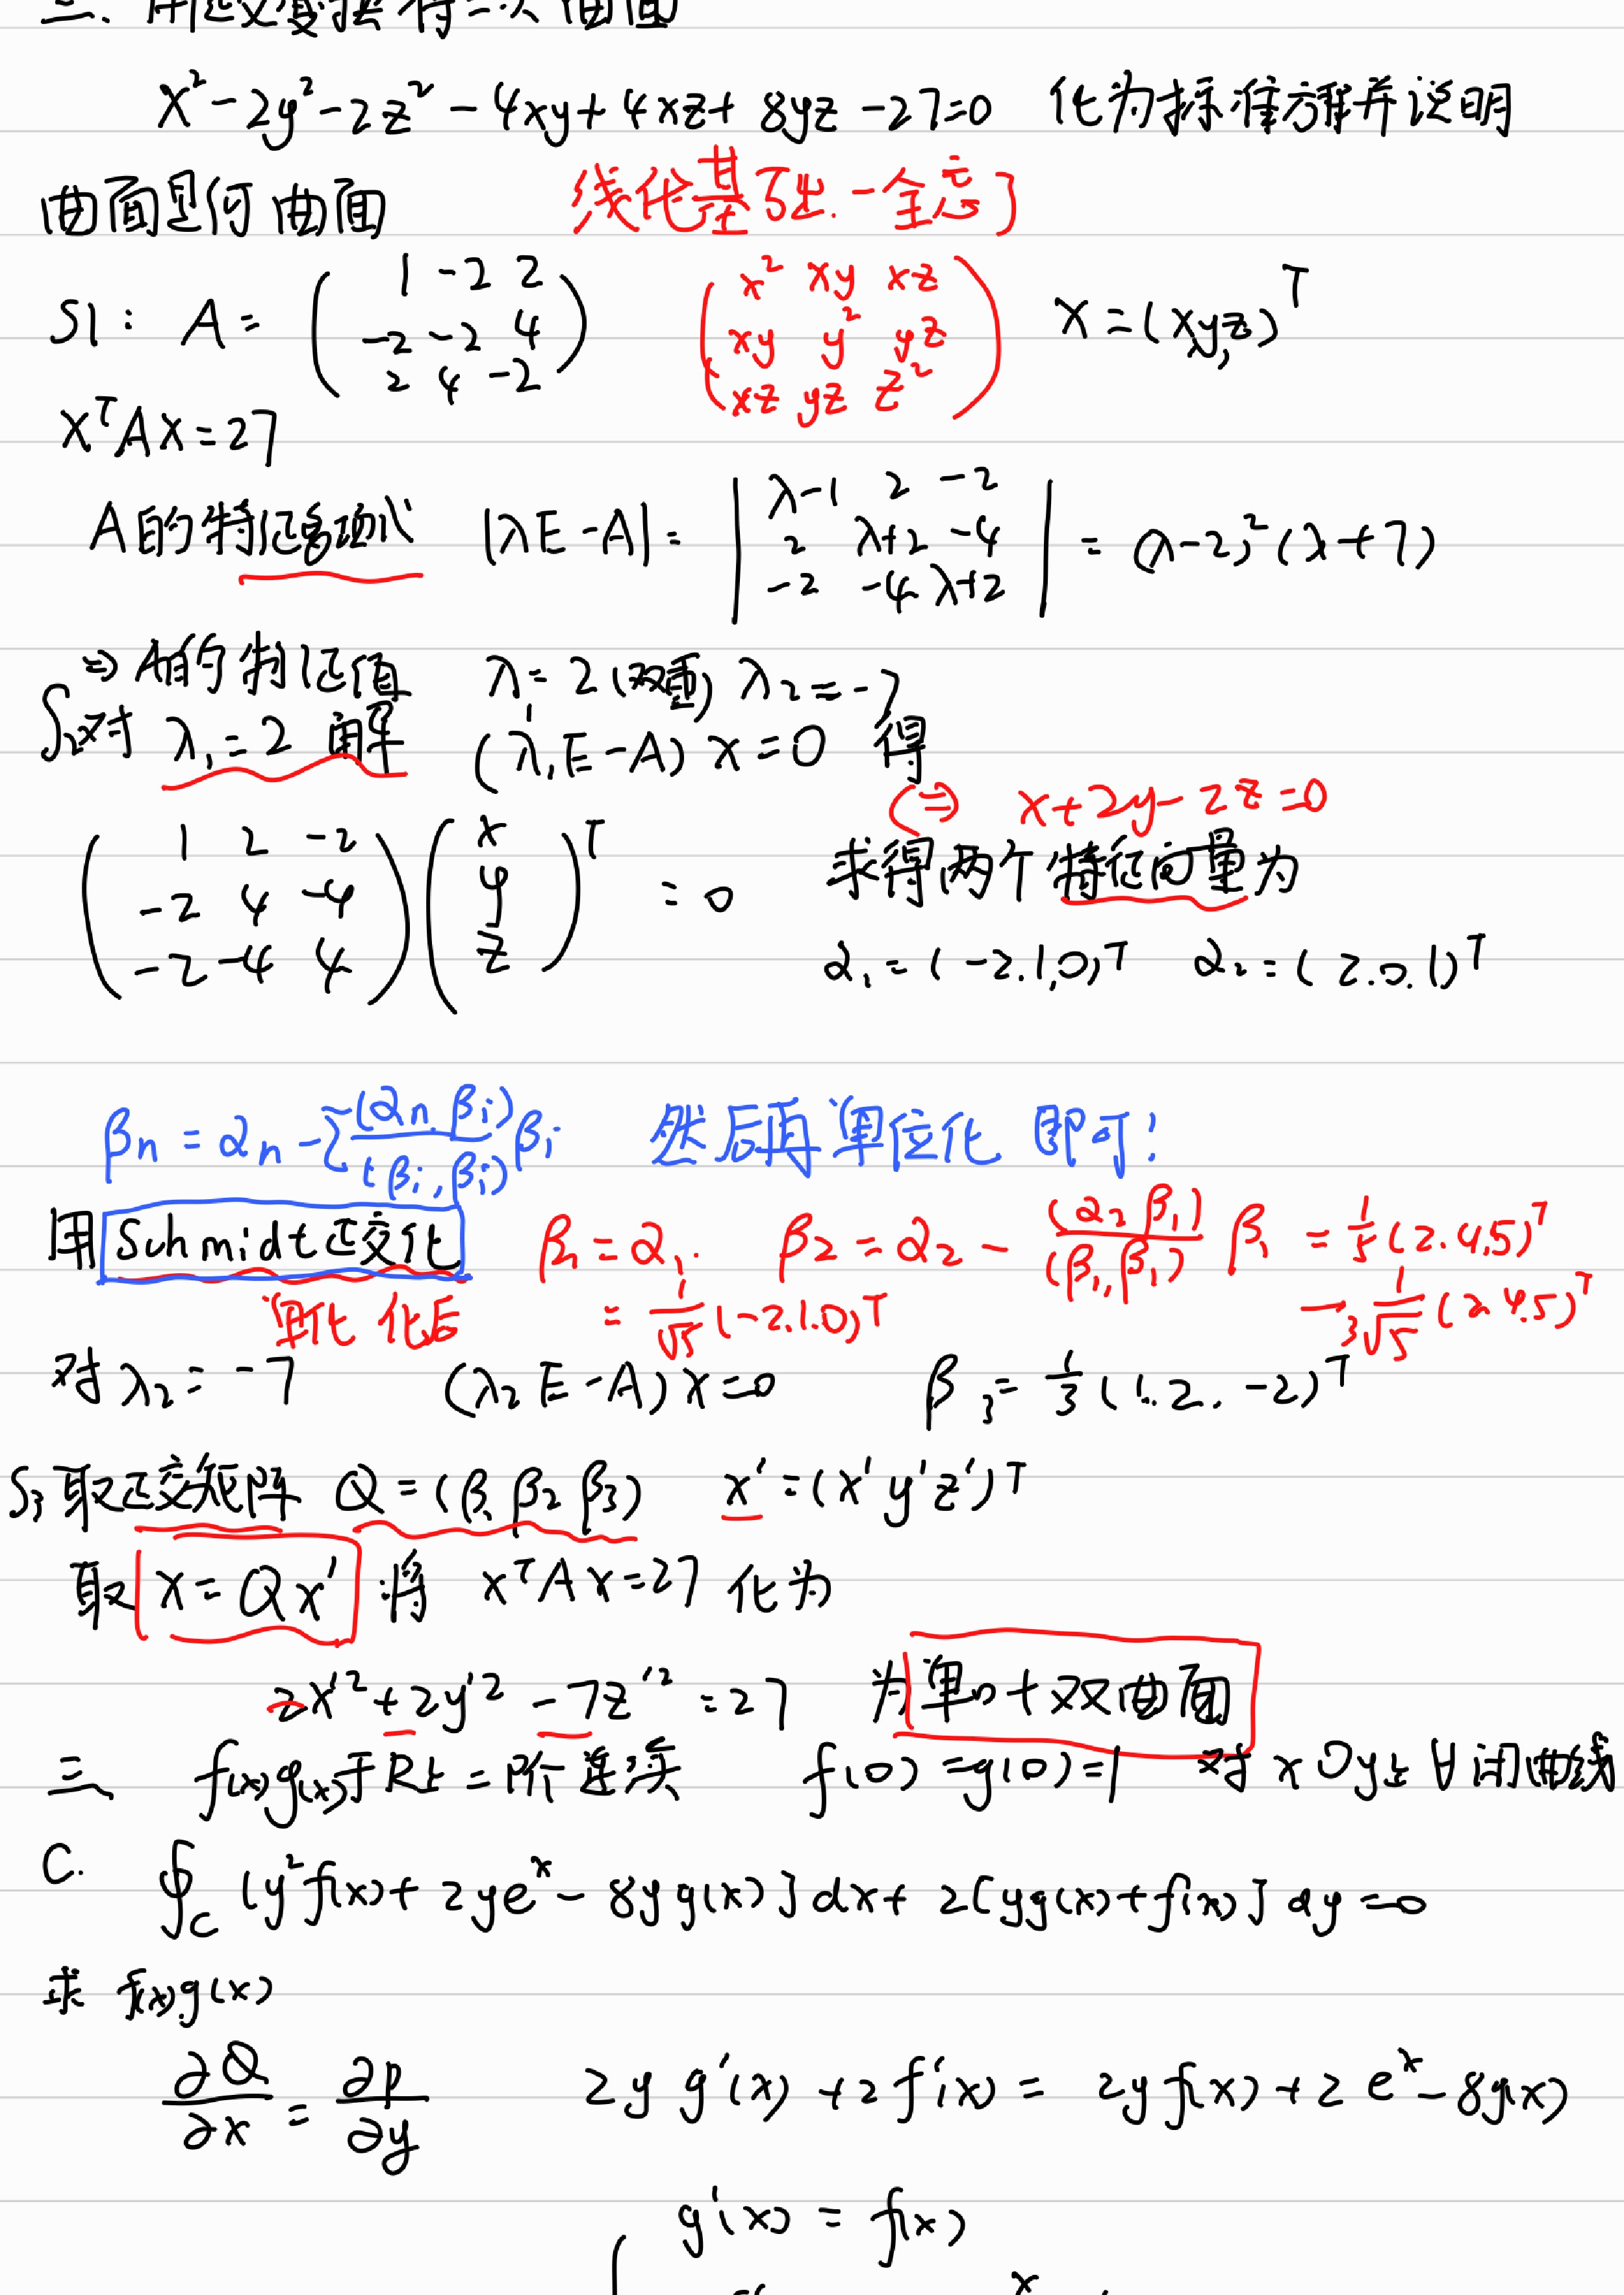 x²-2y²-2z²-4xy+4xz+8yz-27=0 化为标准方程并说明
曲面是何曲面 线代基础.一全忘了
S1: A= ( 1 -2 2 / -2 -2 4 / 2 4 -2 ) ( x² xy xz / xy y² yz / xz yz z² ) X=(x,y,z)ᵀ
XᵀAX=27
A的特征多项式 |λE-A|= | λ-1 2 -2 / 2 λ+2 -4 / -2 -4 λ+2 | = (λ-2)²(λ+7)
⇒ A的特征值 λ₁=2(双重) λ₂=-7
S₂对 λ₁=2 解 (λ₁E-A)x=0 得
(⇒) x+2y-2z=0
( 1 2 -2 / -2 4 -4 / -2 -4 4 ) ( x / y / z )ᵀ =0 求得两个特征向量为
α₁=(-2.1,0)ᵀ α₂=(2.0.1)ᵀ
βn=αn-Σ(αn,βi)/(βi,βi)βi 然后再单位化 即可!
用Schmidt正交化 β₁=α₁. β₂=α₂-(α₂,β₁)/(β₁,β₁) β₁ =1/5(2.4,5)ᵀ
单化 化后 =1/√5(-2.1.0)ᵀ →1/3√5(2.4.5)ᵀ
对λ₂=-7 (λ₂E-A)x=0 β₃=1/3(1.2.-2)ᵀ
S₃取正交矩阵 Q=(β₁ β₂ β₃) x'=(x'y'z')ᵀ
取 x=Qx' 将 xᵀAx=27 化为
2x'²+2y'²-7z'²=27 为单叶双曲面
三、 f(x)g(x)于R上二阶连续 f(0)=g(0)=1 对xOy上∀闭曲线
C. ∮c [y²f(x)+2yeˣ-8yg(x)]dx+2[yg(x)+f(x)]dy=0
求 f(x),g(x)
∂Q/∂x=∂p/∂y 2yg'(x)+2f'(x)=2yf(x)+2eˣ-8g(x)
g'(x)=f(x)